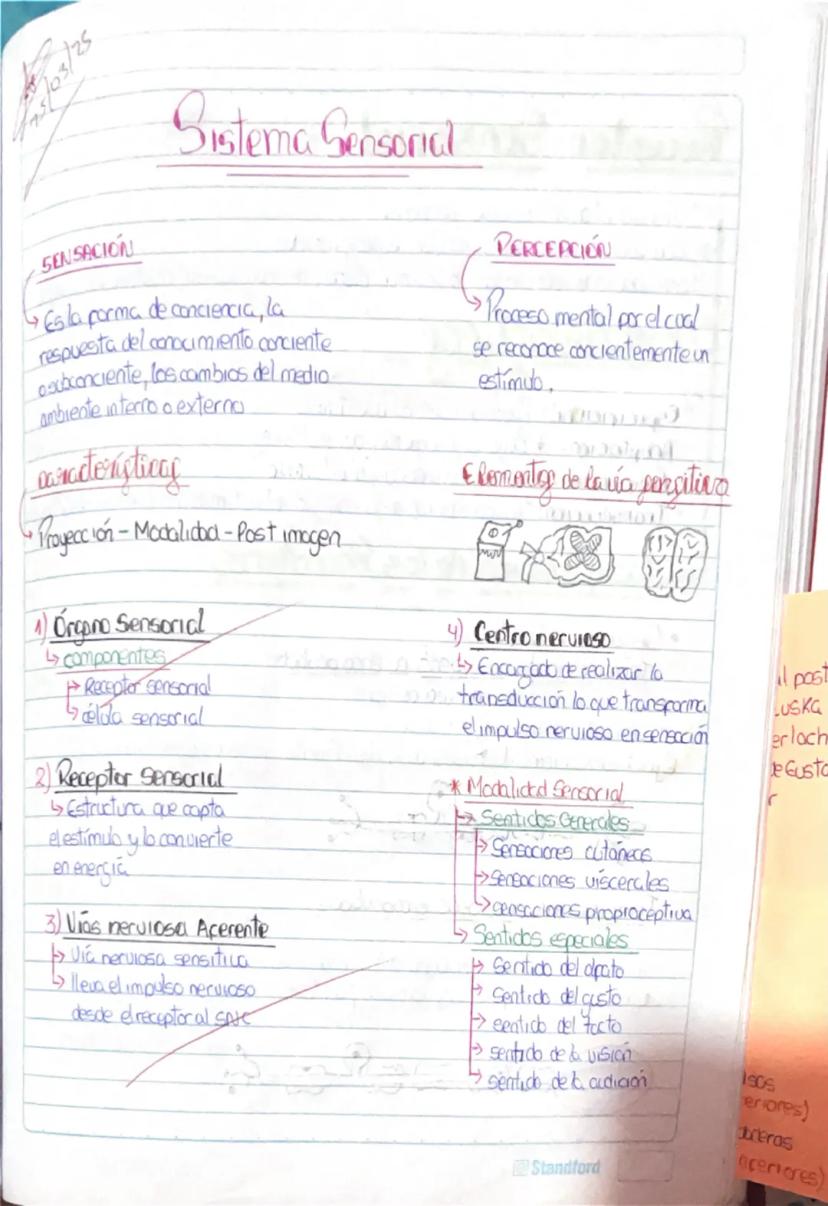 Sistema Sensorial
SENSACIÓN
Es la forma de conciencia, la
respuesta del conocimiento conciente
o subconciente, los cambios del medio
ambiente interno o externo
PERCEPCIÓN
Proceso mental por el cual
se reconoce concientemente un
estímulo.
características
Proyección - Modalidad - Post imagen
Elementos de la vía sensitiva
1) Órgano Sensorial
componentes
Receptor sensorial
célula sensorial
2) Receptor Sensorial
Estructura que capta
el estímulo y lo convierte
en energía
3) Vías nerviosa Aferente
Vía nerviosa sensitiva
lleva el impulso nervioso
desde el receptor al SNC
4) Centro nervioso
Encargado de realizar la
transducción lo que transforma
el impulso nervioso en sensación
* Modalidad Sensorial
Sentidos Generales
Sensaciones cutáneas
sensaciones viscerales
sensaciones propioceptiva
Sentidos especiales
Sentido del olfato
Sentido del gusto
sentido del tacto
sentido de la visión
sentido de la audición
Standford
l post
LUSKA
erloch
de Gusto
r
eriores)